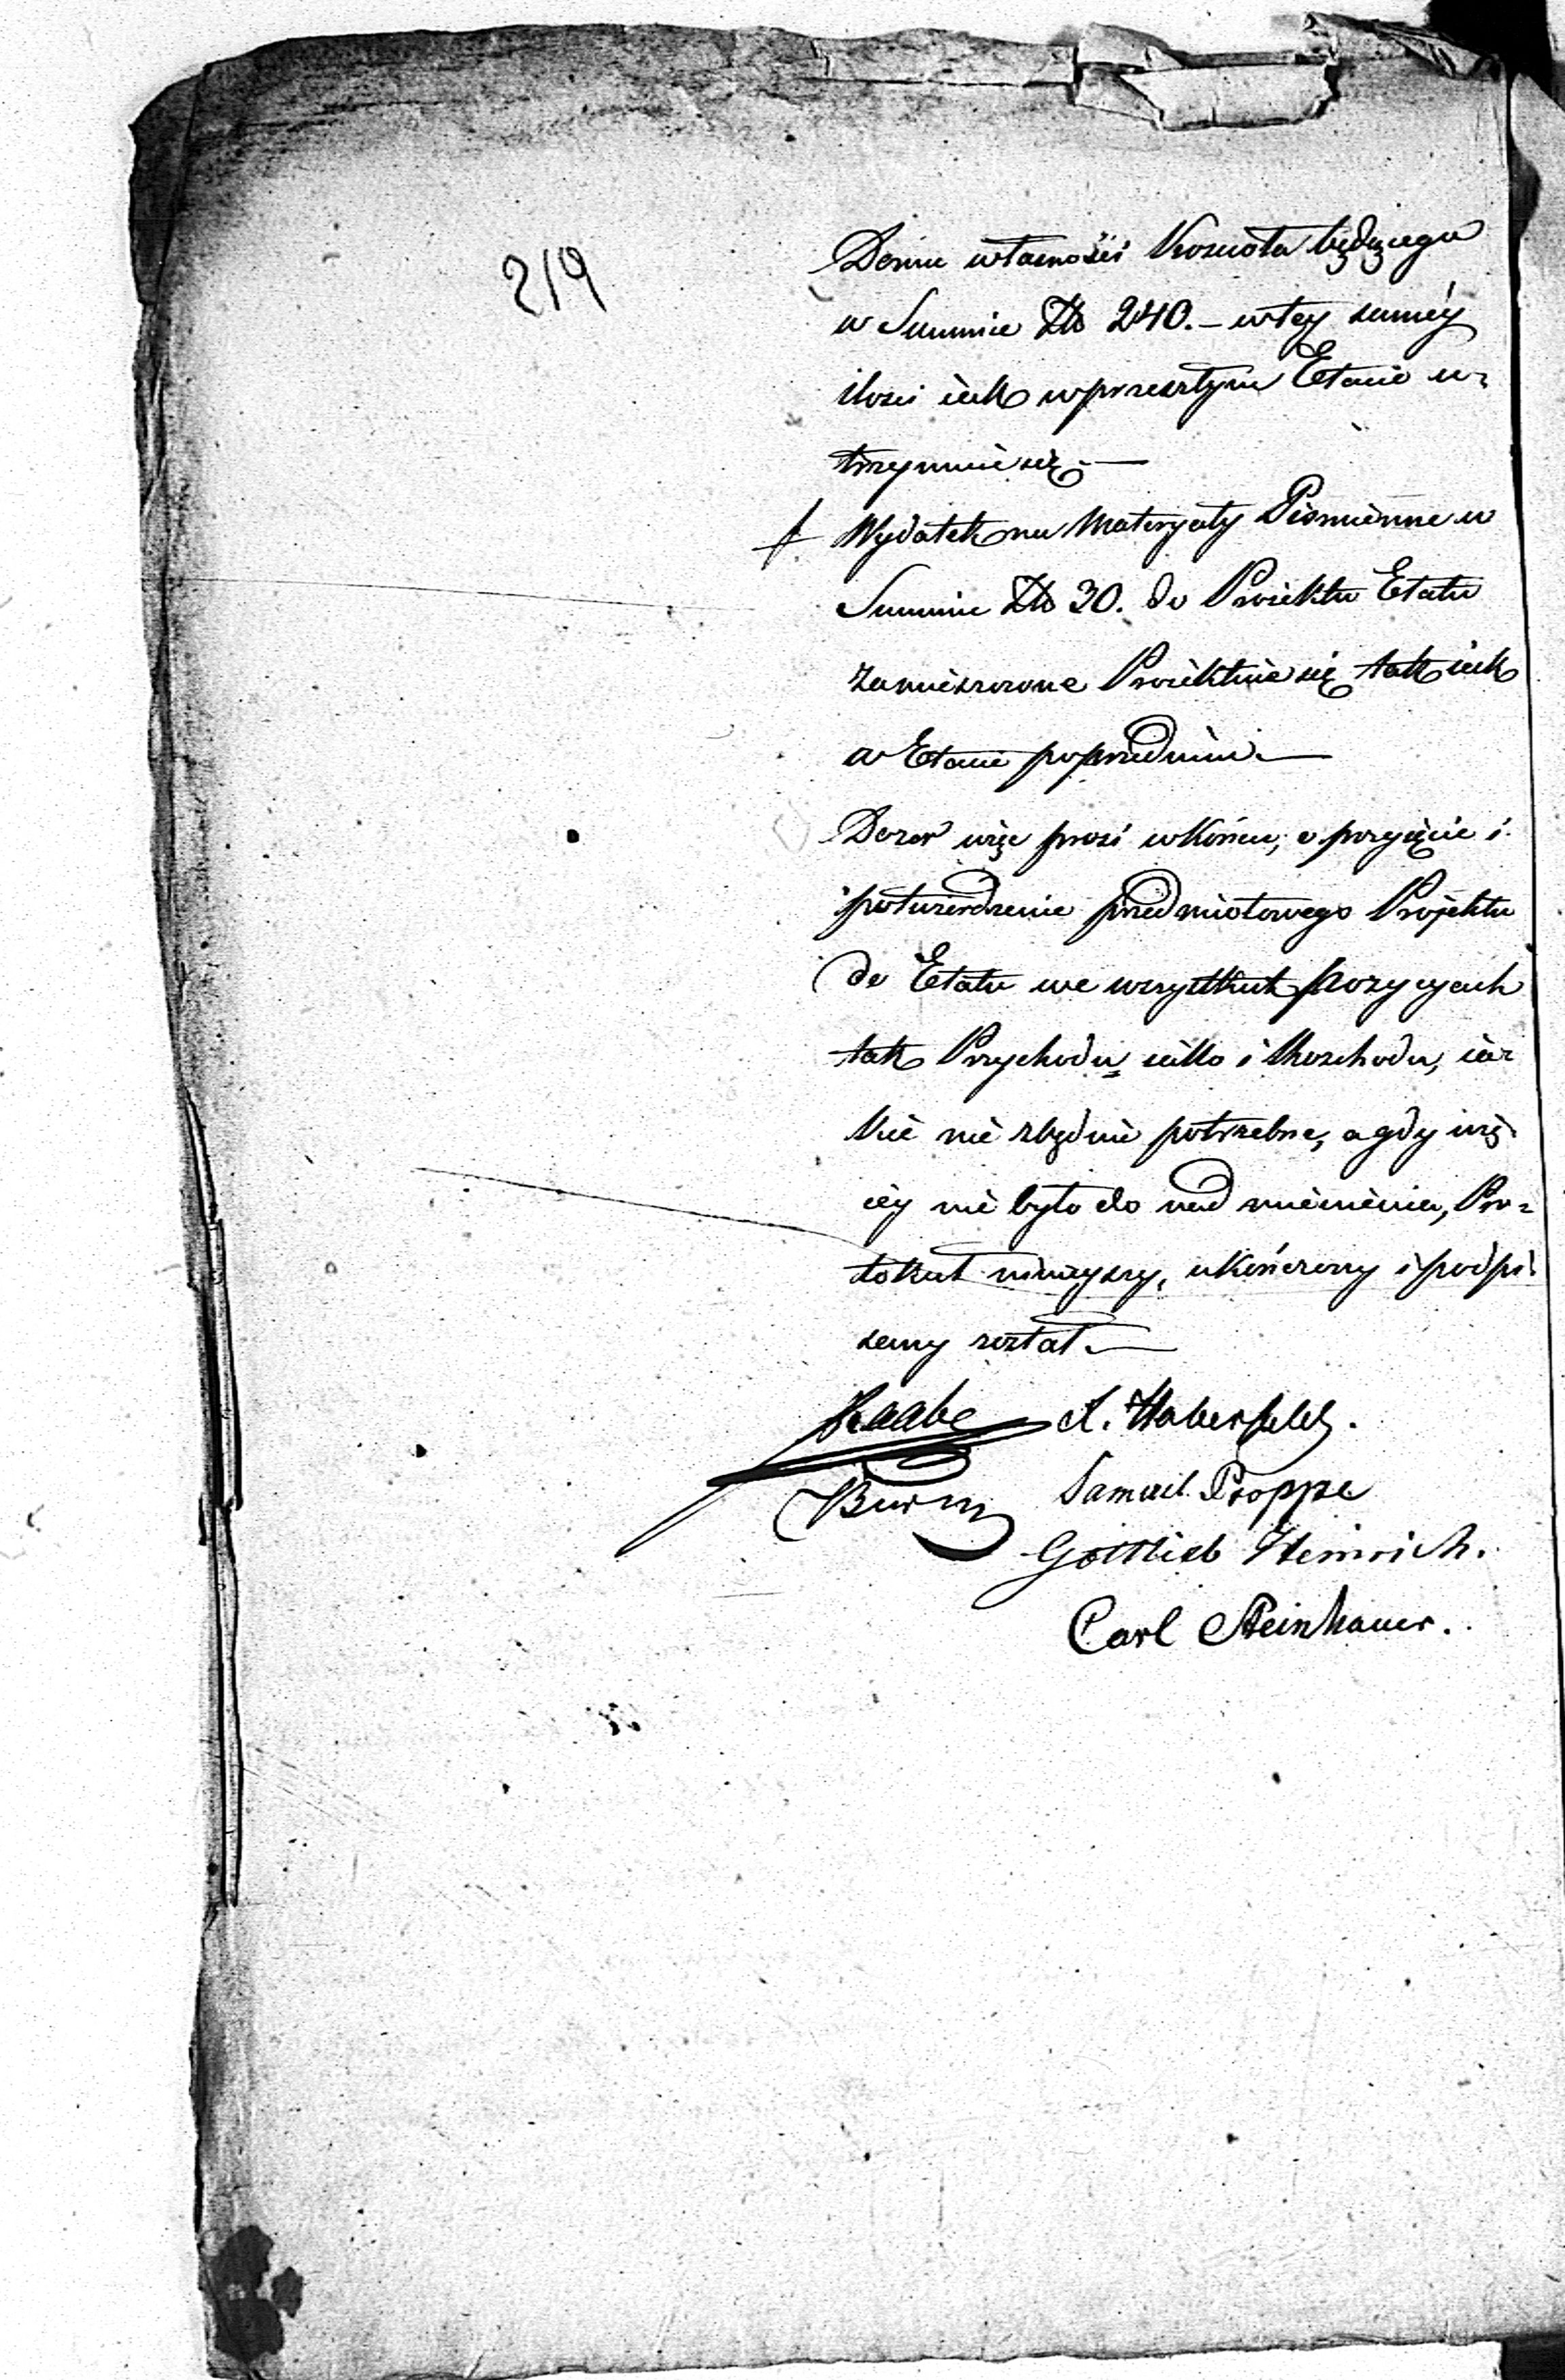 219
Domu własności Koscioła będącego
w Summie Zło 240. – w tey samey
ilosci iak w przeszłym Etacie u-
trzymuie się. —
f Wydatek na Materyały Pismienne w
Summie Zło 30. do Proiektu Etatu
zamieszczone Proiektuie się tak iak
w Etacie poprzednim. —
Dozor więc prosi w końcu, o przyięcie i
potwierdzenie przedmiotowego Projektu
do Etatu we wszystkich pozycyach
tak Przychodu iako i Rozchodu, ia-
kie nie zbędnie potrzebne, a gdy wię-
cey nie było do nad mienienia, Pro-
tokuł ninieyszy, ukończony i podpi-
samy został. —
Raabe A. Haberfeld.
Samuil Proppe
Gottlieb Heinrich.
Carl Steinhauer.